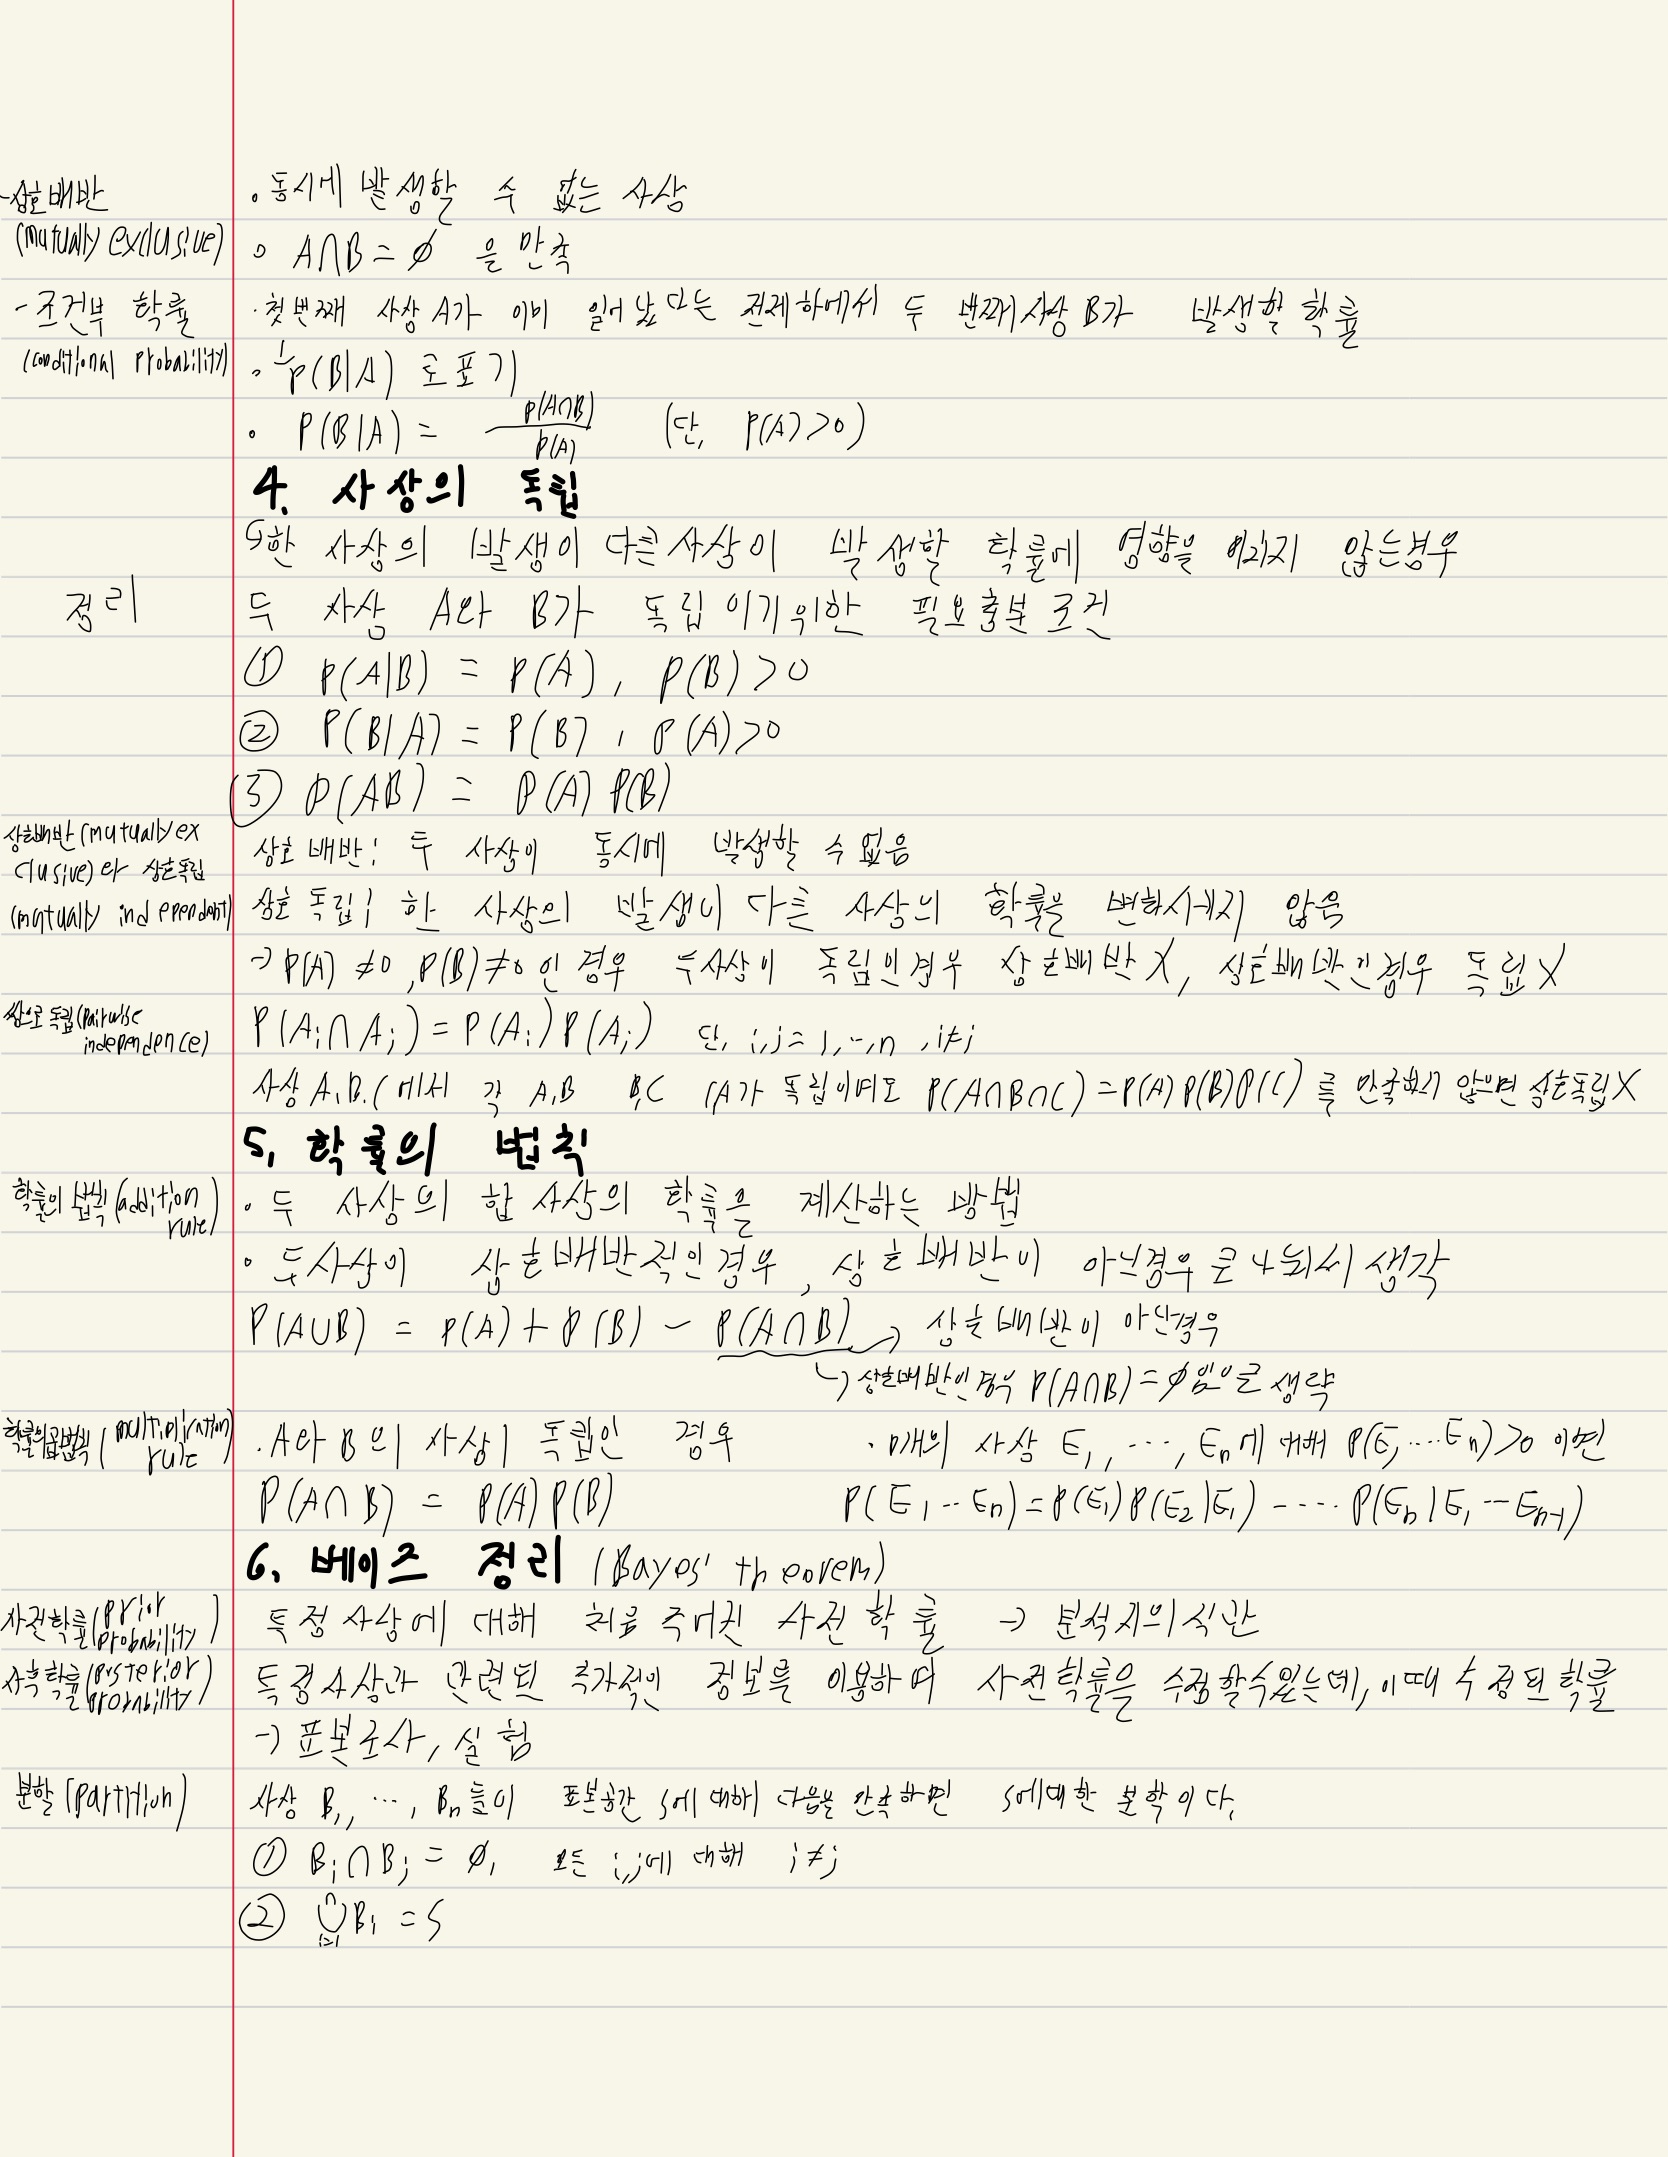 -상호배반
(mutually exclusive)
◦ 동시에 발생할 수 없는 사상
◦ A∩B = ∅ 을 만족
- 조건부 확률
(conditional probability)
· 첫번째 사상 A가 이미 일어났다는 전제하에서 두 번째사상 B가 발생할 확률
◦ P(B|A) 로표기
◦ P(B|A) = P(A∩B)/P(A) (단, P(A)>0)
4. 사상의 독립
↳한 사상의 발생이 다른사상이 발생할 확률에 영향을 미치지 않는경우
정리
두 사상 A와 B가 독립이기위한 필요충분조건
① P(A|B) = P(A), P(B)>0
② P(B|A) = P(B), P(A)>0
③ P(AB) = P(A)P(B)
상호배반(mutually ex
clusive)와 상호독립
(mutually independent)
상호배반: 두 사상이 동시에 발생할 수 없음
상호독립; 한 사상의 발생이 다른 사상의 확률을 변화시키지 않음
→P(A)≠0, P(B)≠0인 경우 두사상이 독립인경우 상호배반X, 상호배반인경우 독립X
쌍으로 독립(pairwise
independence)
P(Ai∩Aj)=P(Ai)P(Aj) 단, i,j=1,…,n ,i≠j
사상 A,B,C에서 각 A,B B,C C,A가 독립이여도 P(A∩B∩C)=P(A)P(B)P(C)를 만족하지 않으면 상호독립X
5. 확률의 법칙
확률의 법칙(addition
rule)
· 두 사상의 합 사상의 확률을 계산하는 방법
· 두사상이 상호배반적인경우, 상호배반이 아닌경우로 나눠서 생각
P(A∪B) = P(A)+P(B)-P(A∩B) → 상호배반이 아닌경우
↳상호배반인경우 P(A∩B)=∅임으로 생략
확률의곱법칙(multiplication
rule
· A와 B의 사상이 독립인 경우
P(A∩B) = P(A)P(B)
· n개의 사상 E₁, …, Eₙ에 대해 P(E₁…Eₙ)>0 이면
P(E₁…Eₙ)=P(E₁)P(E₂|E₁)----P(Eₙ|E₁…Eₙ₋₁)
6. 베이즈 정리 (Bayes' theorem)
사전확률(prior
probability)
특정사상에 대해 처음 주어진 사전 확률 → 분석자의식간
사후확률(posterior
probability)
특정사상과 관련된 추가적인 정보를 이용하여 사전확률을 수정할수있는데, 이때 수정된확률
→ 표본조사, 실험
분할(partition)
사상 B₁, …, Bₙ들이 표본공간 S에 대해 다음을 만족하면 S에대한 분할이다.
① Bi∩Bj = ∅, 모든 i,j에 대해 i≠j
② ⋃ⁿᵢ₌₁Bi = S